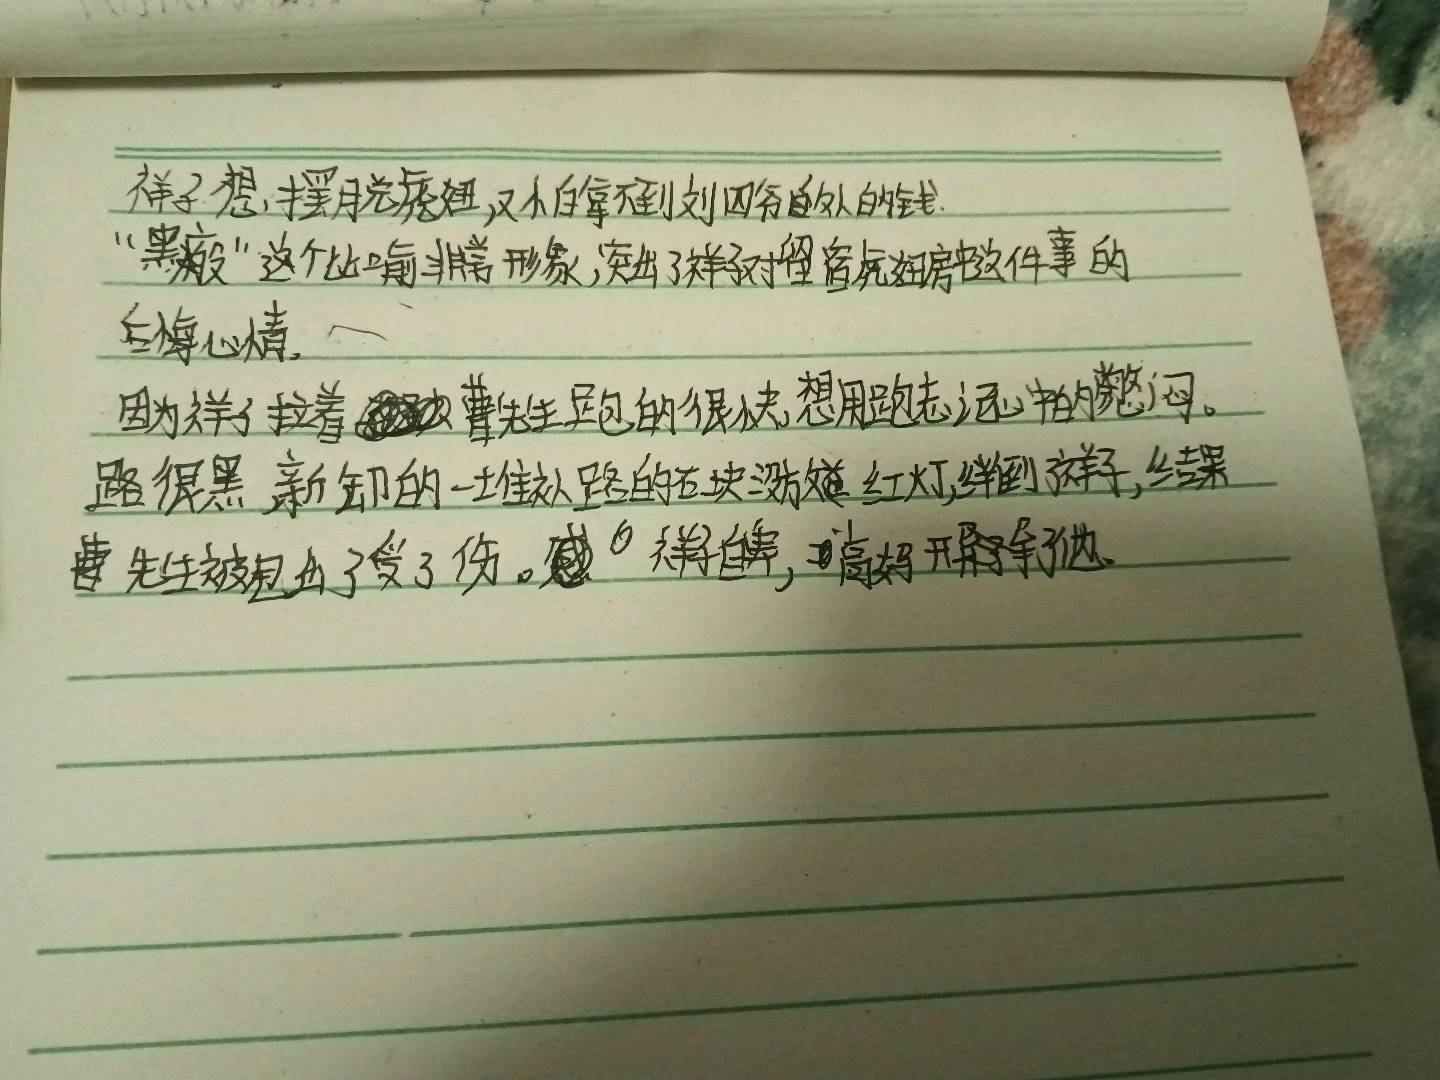 祥子想,摆脱虎妞,又怕拿不到刘四爷的钱.
“黑瘢”这个比喻非常形象,突出了祥子对留宿虎妞房中这件事的
后悔心情。
因为祥子拉着曹先生跑的很快,想用跑忘记心中的憋闷。
路很黑,新卸的一堆补路的石块没放道红灯,绊倒了祥子,结果
曹先生被甩出了受了伤。祥子自责,高妈开导了他.